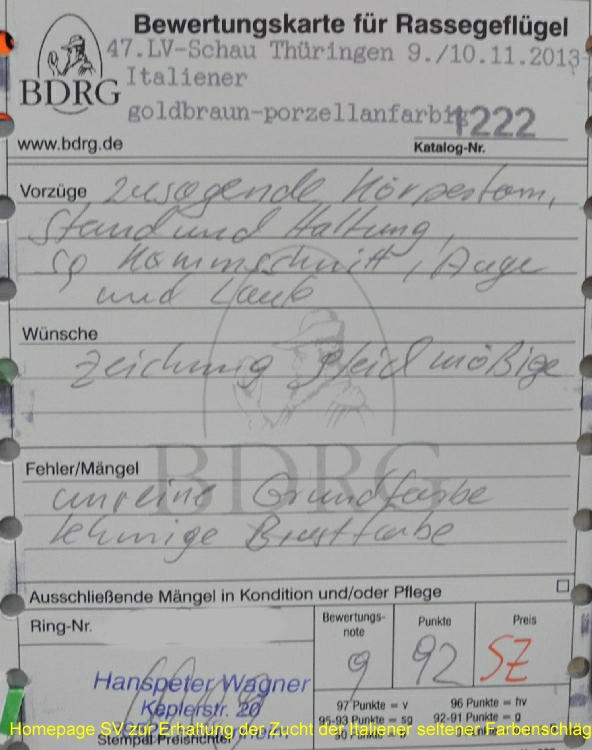 Bewertungskarte für Rassegeflügel
47.LV-Schau Thüringen 9./10.11.2013
Italiener
BDRG
goldbraun-porzellanfarbig
1222
www.bdrg.de
Katalog-Nr.
Vorzüge zusagende Körperform,
Stand und Haltung,
sg Kammschnitt, Auge
und Lauf
Wünsche
Zeichnung gleichmäßige
BDRG
Fehler/Mängel
unreine Grundfarbe
lehmige Brustfarbe
Ausschließende Mängel in Kondition und/oder Pflege
Ring-Nr.
Bewertungs-
note
Punkte
Preis
g
92
SZ
Hanspeter Wagner
Keplerstr. 20
97 Punkte = v
96 Punkte = hv
95-93 Punkte = sg
92-91 Punkte = g
Homepage SV zur Erhaltung der Zucht der Italiener seltener Farbenschläg
Stempel Preisrichter